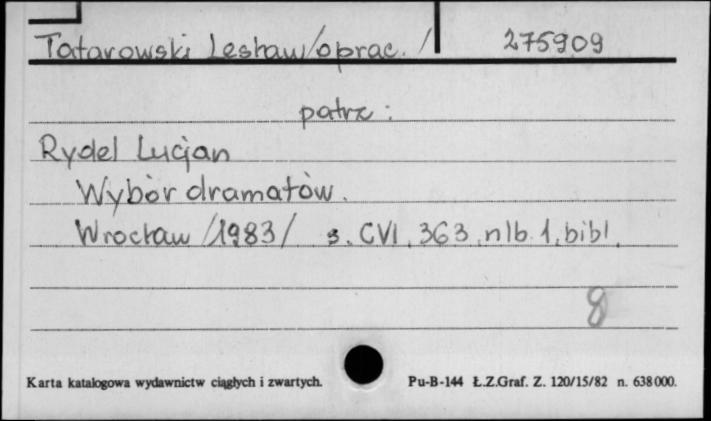 Tatarowski Lesław/oprac./ 275909
patrz:
Rydel Lucjan
Wybór dramatów.
Wrocław /1983/ s. CVI, 363, nlb 1, bibl.
8
Karta katalogowa wydawnictw ciągłych i zwartych. Pu-B-144 Ł.Z.Graf. Z. 120/15/82 n. 638000.